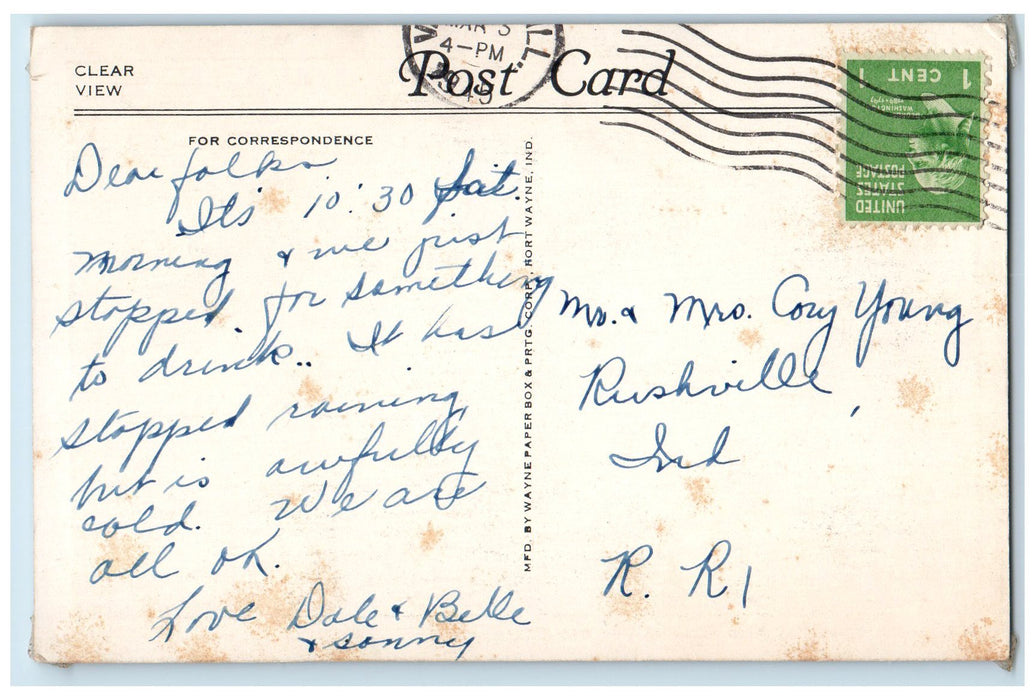 CLEAR
VIEW
Post Card
MAR 3
4-PM
ILL.
1 CENT 1
WASHINGTON
1789-1797
UNITED
STATES
POSTAGE
FOR CORRESPONDENCE
Dear folks
It's 10:30 Sat.
morning & we just
stopped for something
to drink.. It has
stopped raining,
but is awfully
cold. We are
all ok.
Love Dale & Belle
& sonny
MFD. BY WAYNE PAPER BOX & PRTG. CORP., FORT WAYNE, IND.
Mr. & Mrs. Cory Young
Rushville,
Ind
R. R 1